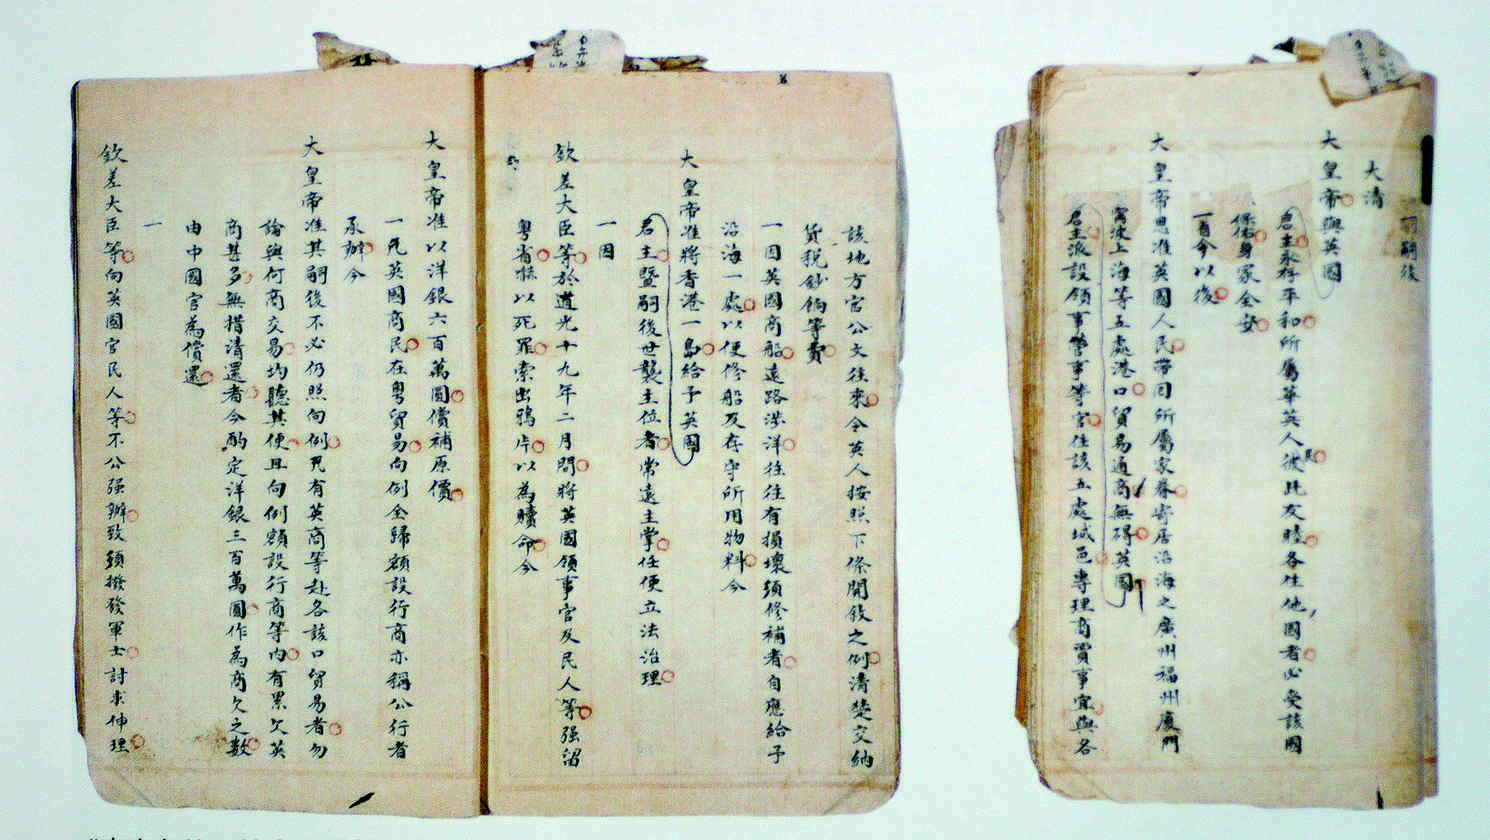 嗣後
大清
大皇帝與英國
君主永存平和所屬華英人民彼此友睦各住他國者必受該國
保佑身家全安
一自今以後
大皇帝恩准英國人民帶同所屬家眷寄居沿海之廣州福州廈門
寧波上海等五處港口貿易通商無礙英國
君主派設領事管事等官住該五處城邑專理商賈事宜與各
該地方官公文往來令英人按照下條開敘之例清楚交納
貨稅鈔餉等費
一因英國商船遠路涉洋往往有損壞須修補者自應給予
沿海一處以便修船及存守所用物料今
大皇帝准將香港一島給予英國
君主暨嗣後世襲主位者常遠主掌任便立法治理
一因
欽差大臣等於道光十九年二月間將英國領事官及民人等强留
粵省嚇以死罪索出鴉片以為贖命今
大皇帝准以洋銀六百萬圓償補原價
一凡英國商民在粵貿易向例全歸額設行商亦稱公行者
承辦今
大皇帝准其嗣後不必仍照向例凡有英商等赴各該口貿易者勿
論與何商交易均聽其便且向例額設行商等內有累欠英
商甚多無措清還者今酌定洋銀三百萬圓作為商欠之數
由中國官為償還
一
欽差大臣等向英國官民人等不公强辦致須撥發軍士討求伸理